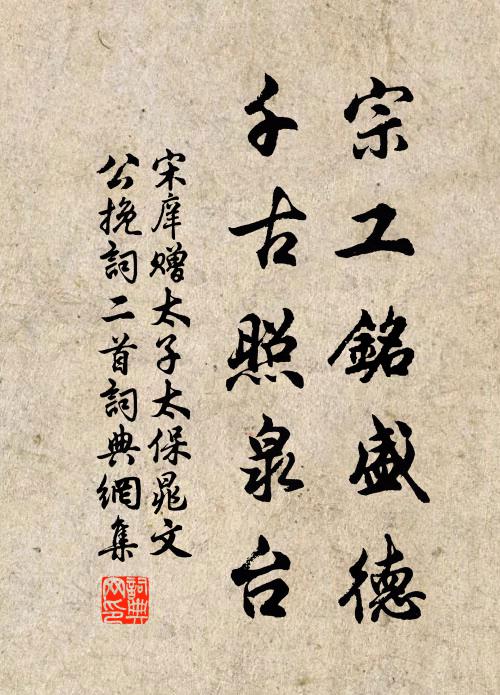 宗工銘盛德
千古照泉台
宋庠贈太子太保晁文
公挽詞二首詞典網集
詞典
網印